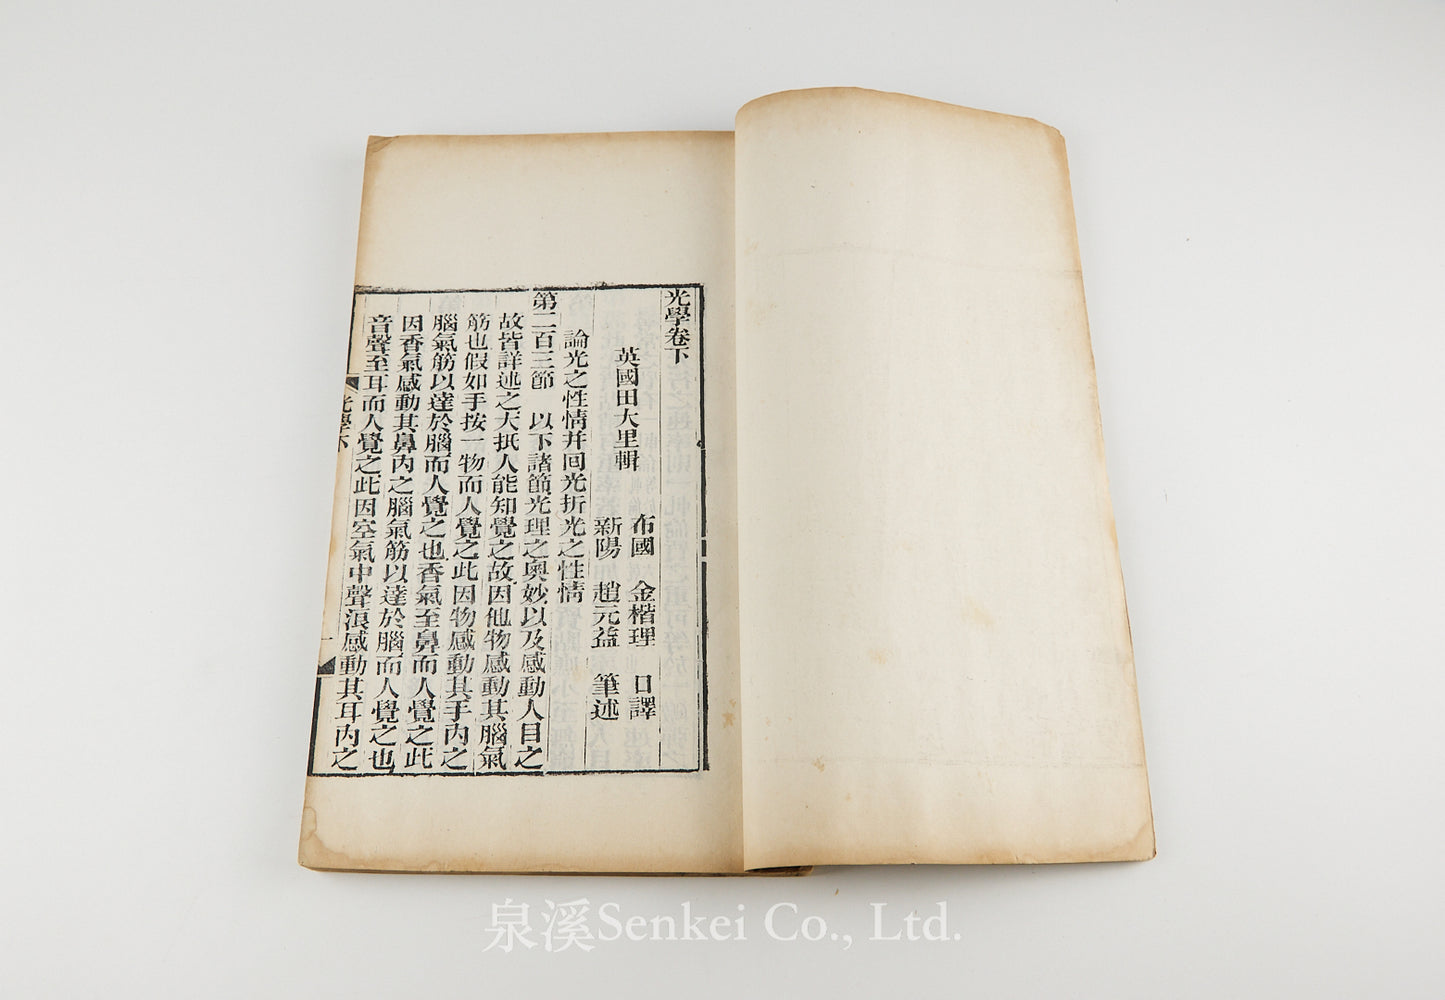 光學卷下
英國田大里輯
布國 金楷理 口譯
新陽 趙元益 筆述
論光之性情并囘光折光之性情
第二百三節 以下諸節光理之奧妙以及感動人目之
故皆詳述之大抵人能知覺之故因他物感動其腦氣
筋也假如手按一物而人覺之此因物感動其手內之
腦氣筋以達於腦而人覺之也香氣至鼻而人覺之此
因香氣感動其鼻內之腦氣筋以達於腦而人覺之也
音聲至耳而人覺之此因空氣中聲浪感動其耳內之
光學下
一
泉溪Senkei Co., Ltd.